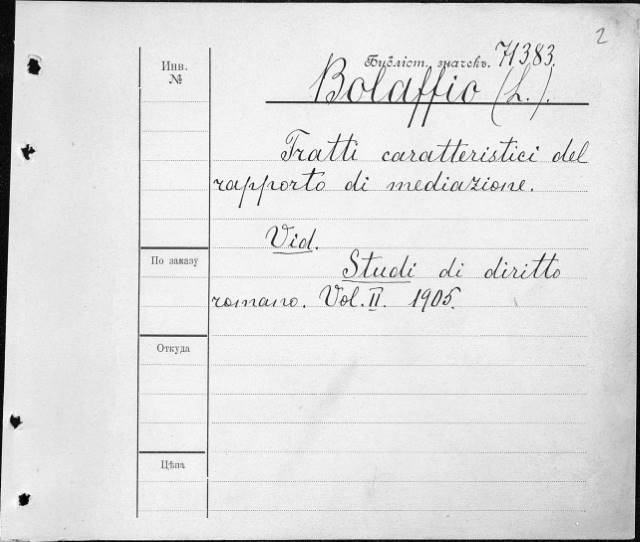 2
Инв.
№
Библіот. значекъ. 71383.
Bolaffio (L.).
Tratti caratteristici del
rapporto di mediazione.
Vid.
По заказу
Studi di diritto
romano. Vol. II. 1905.
Откуда
Цѣна